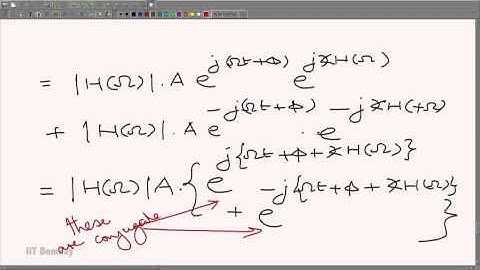 = |H(Ω)|.A e^{j(Ωt+Φ)} e^{j∡H(Ω)}
+ |H(Ω)|.A e^{-j(Ωt+Φ)} . e^{-j∡H(+Ω)}
= |H(Ω)|A.{ e^{j{Ωt+Φ+∡H(Ω)}}
+ e^{-j{Ωt+Φ+∡H(Ω)}} }
these
are conjugate
IIT Bombay